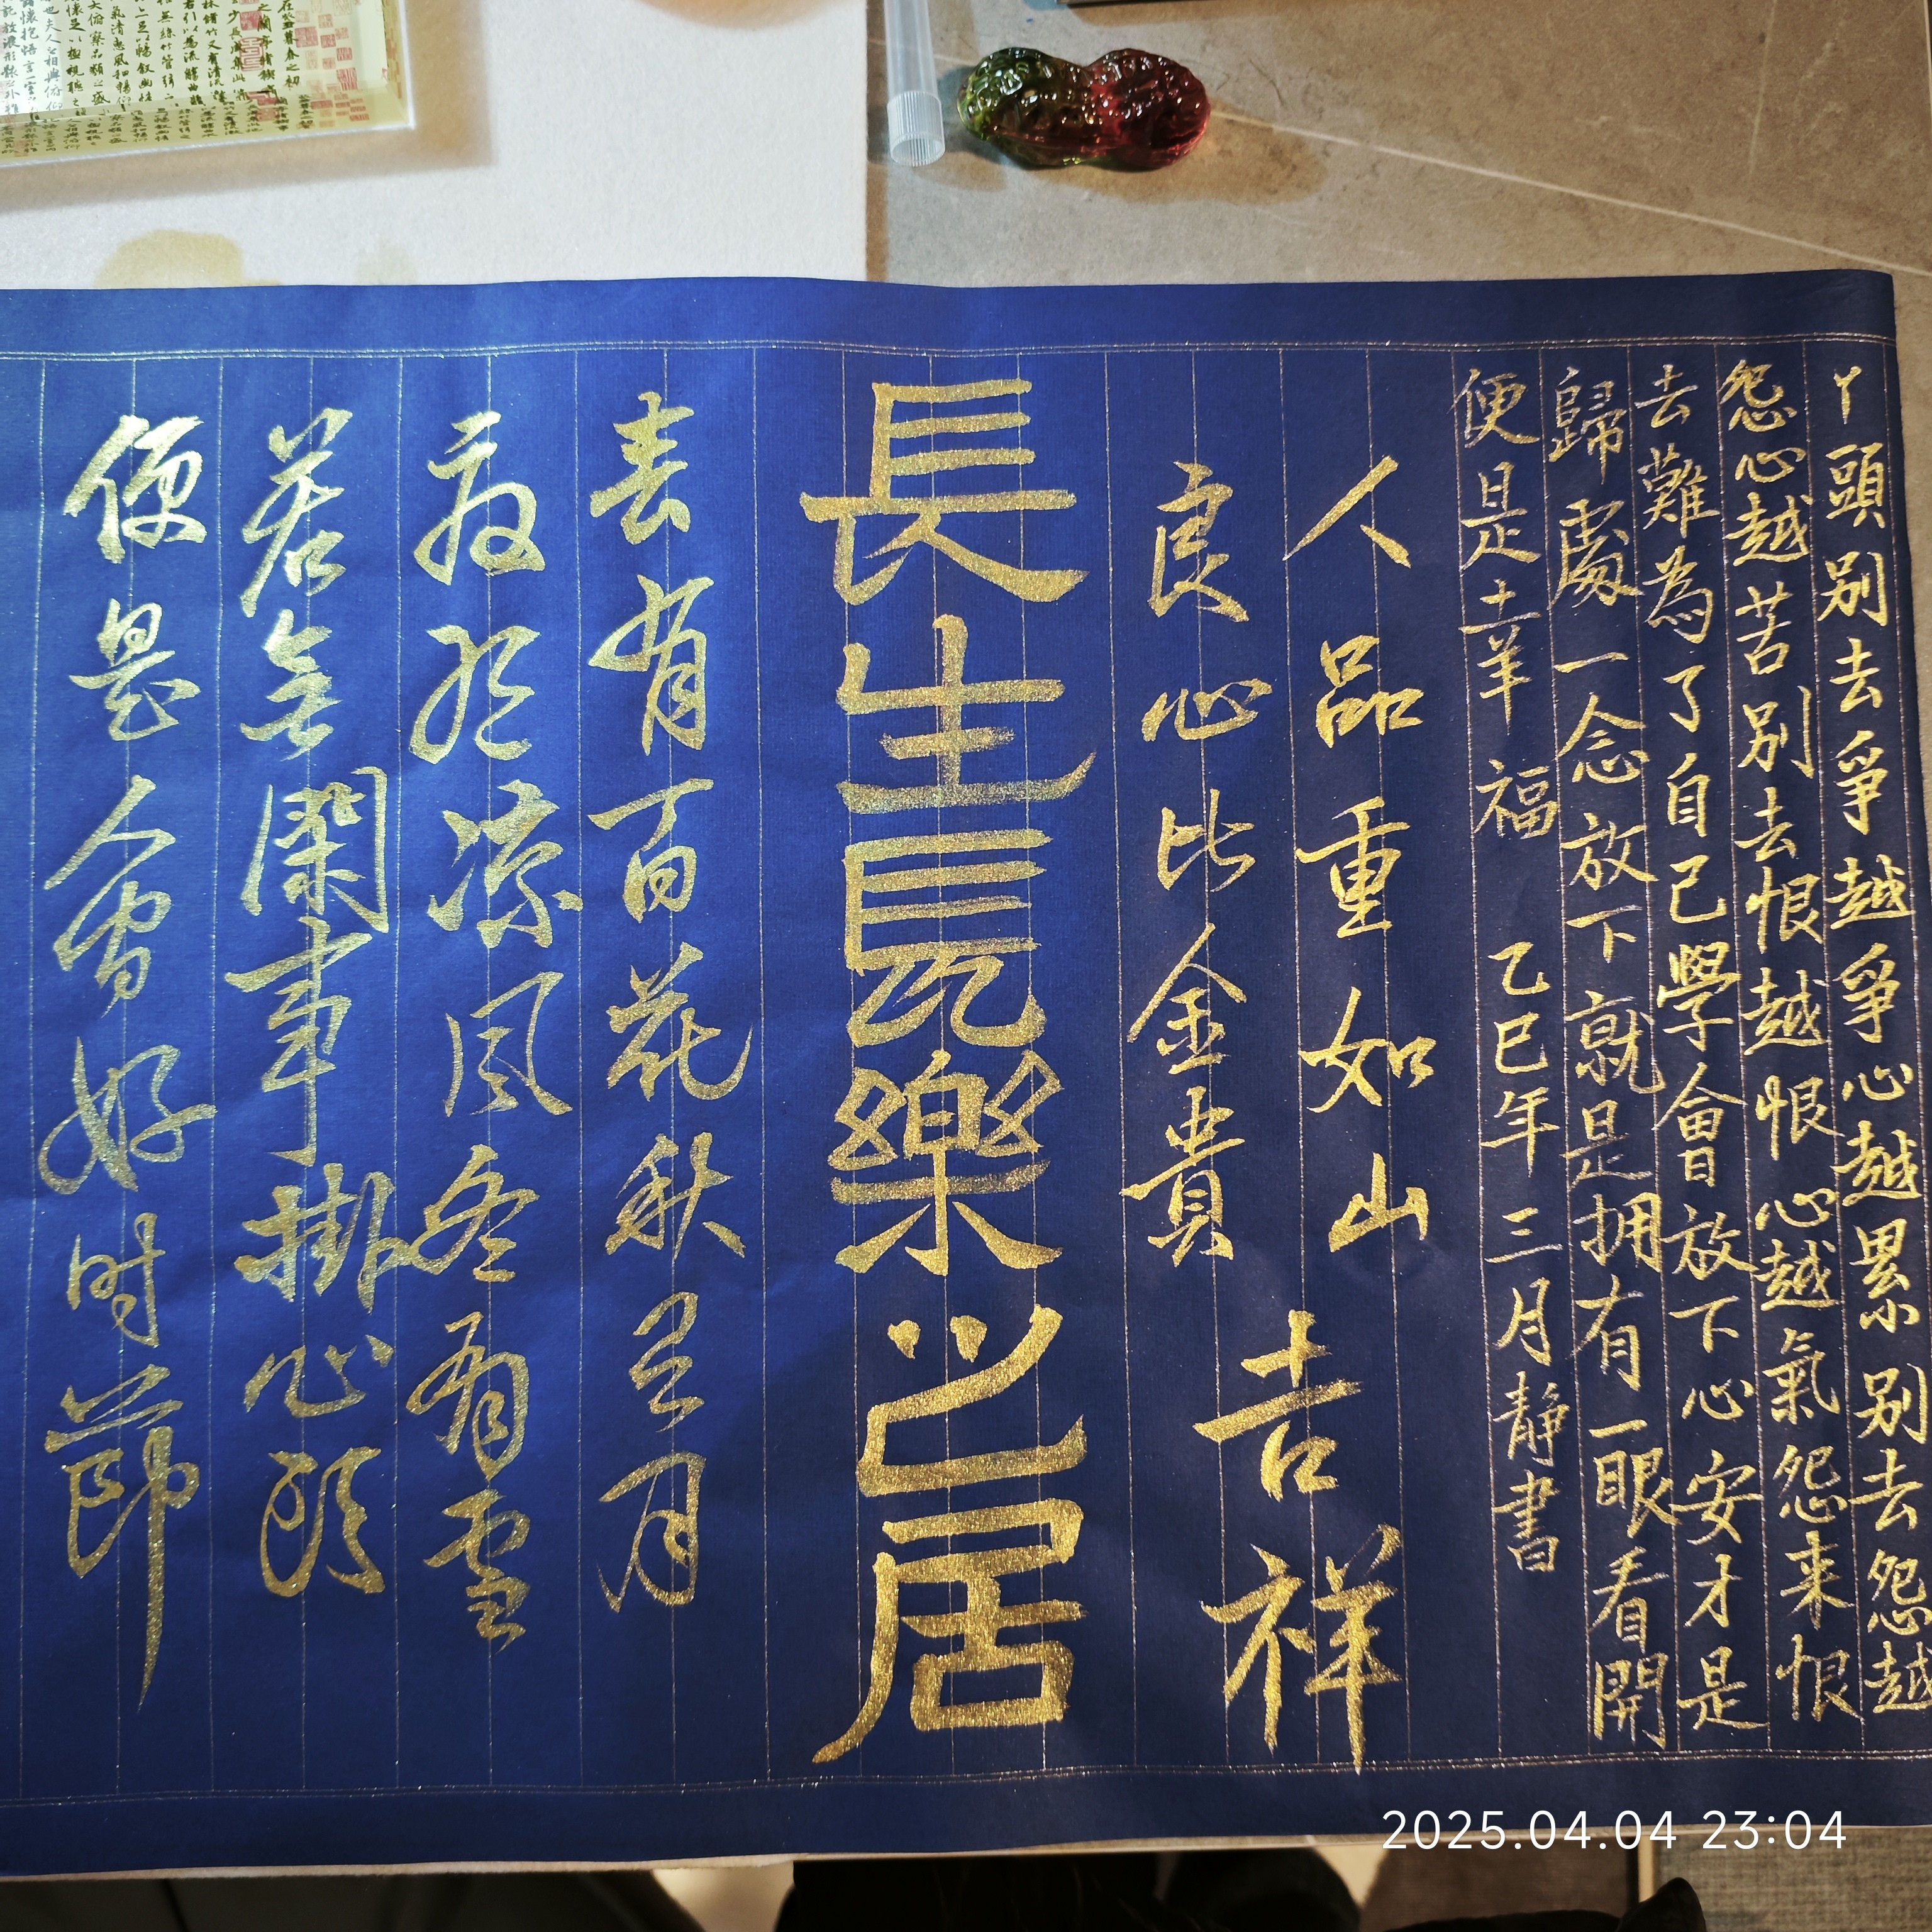 丫頭别去爭越爭心越累别去怨越
怨心越苦别去恨越恨心越氣怨来恨
去難為了自己學會放下心安才是
歸處一念放下就是拥有一眼看開
便是幸福 乙巳年三月靜書
人品重如山
良心比金貴
吉祥
長生長樂之居
春有百花秋有月
夏有凉風冬有雪
若無閑事掛心頭
便是人間好时節
2025.04.04 23:04